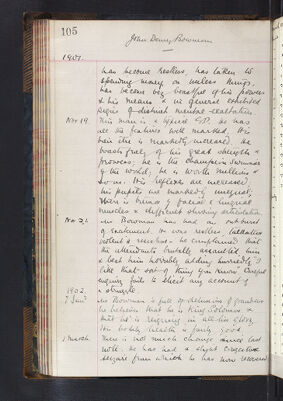 105
John Denny Bowman
1901.
has become restless, has taken to
spending money on useless things,
has become very boastful of his powers
& his means & in general exhibited
signs of distinct mental exaltation
Nov 19. This man is a typical G.P. He has
all the features well marked. His
bien être is markedly increased. He
boasts freely of his great strength &
prowess; he is the champion swimmer
of the world, he is worth millions &
so on. His reflexes are increased
his pupils are markedly unequal,
There is tremor of facial & lingual
muscles & difficult slurring articulation.
Nov 26. Bowman has had an outburst
of excitement. He was restless talkative
violent & resistive. He complained that
the attendants brutally assaulted him
& beat him horribly adding "
like that sort of thing you know". Careful
inquiry fails to elicit any account of
a struggle.
1902.
7 Jany. Bowman is full of delusions of grandeur
he believes that he is King Solomon &
that he is reigning in all his glory.
His bodily health is fairly good.
1 March There is not much change since last
note. He has had a slight congestive
seizure from which he has now recovered.